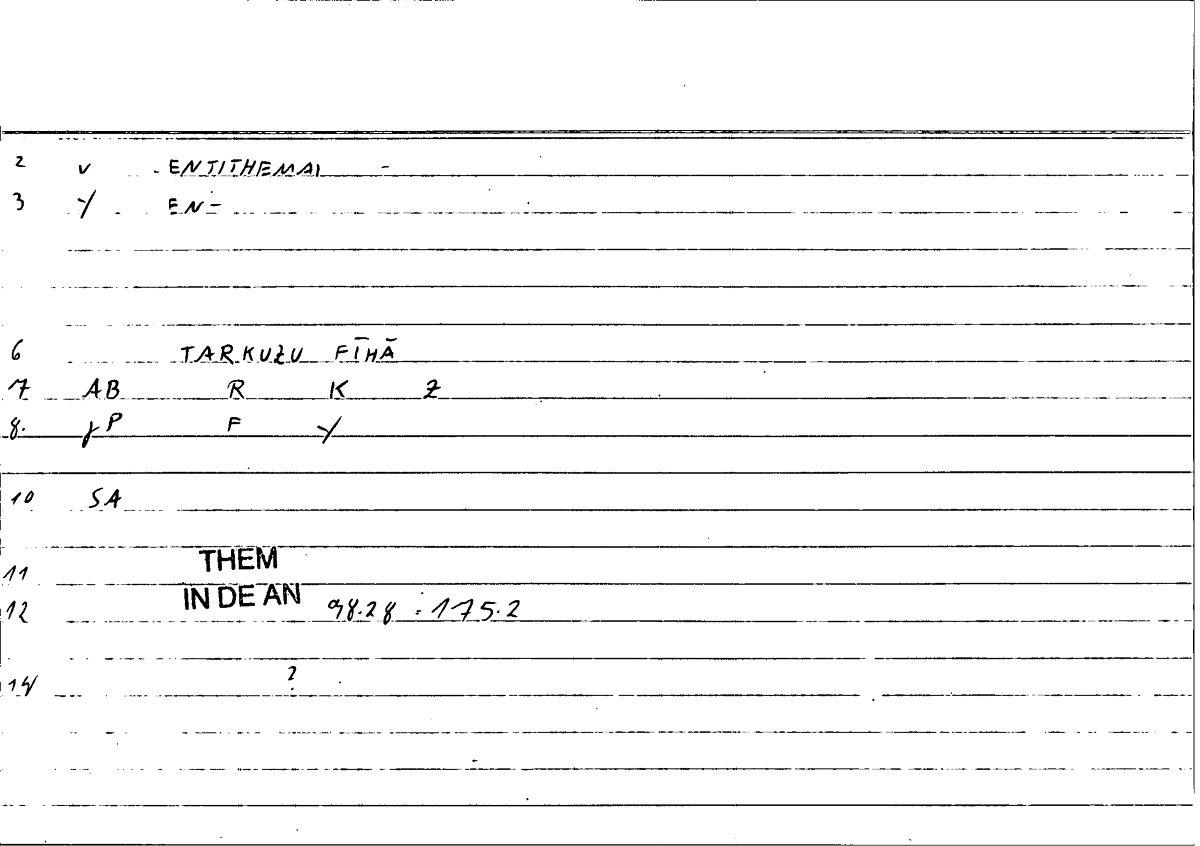 2 v ENTITHEMAI -
3 y EN-
6 TARKUZU FĪHĀ
7 AB R K Z
8. P F y
10 SA
THEM
11
IN DE AN
12 98.28 : 175.2
14 ?